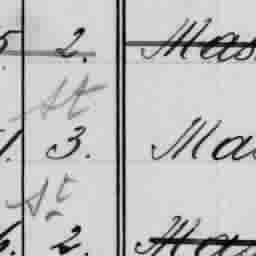 5 2. Mas
St
1. 3. Ma
St
6. 2. Ma